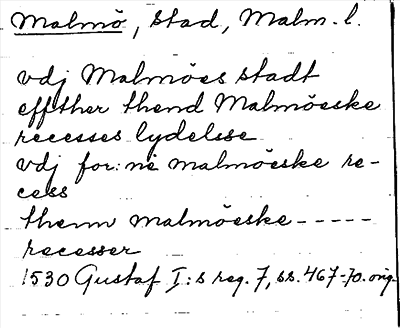 Malmö, stad, Malm. l.
vdj Malmöes stadt
effther thend Malmöeske
recesses lydelsse
vdj for:ne malmöeske re-
cess
thenn malmöeske -----
recesser
1530 Gustaf I:s reg. 7, ss. 467-70. orig.